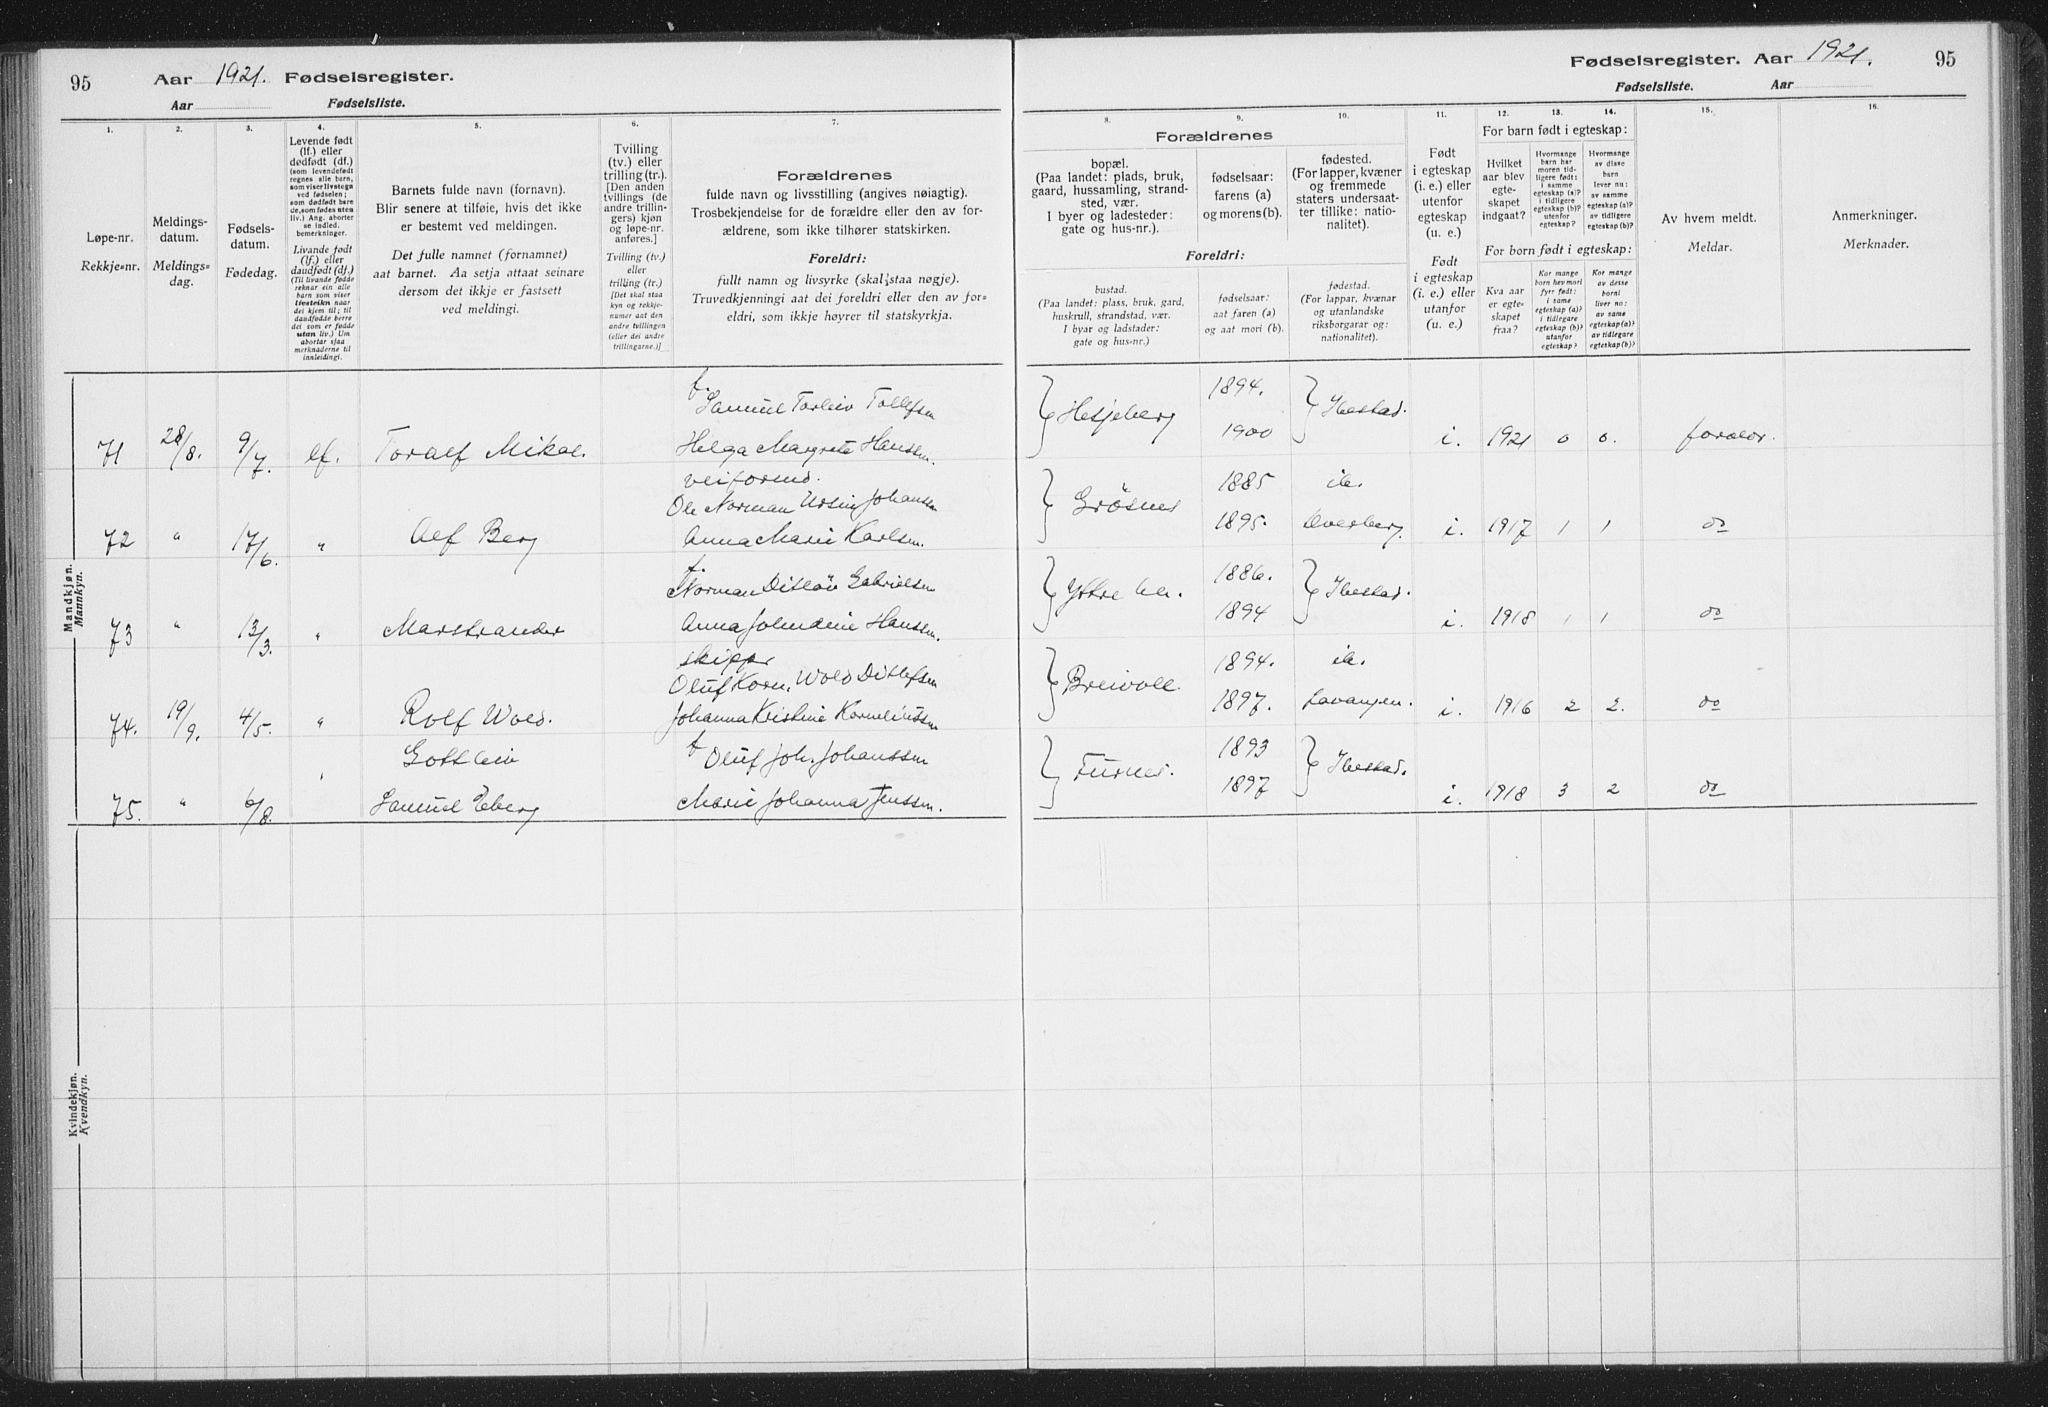 95 Aar 1921. Fødselsregister.
Aar Fødselsliste.
1. 2. 3. 4. 5. 6. 7.
Løpe-nr.
Rekkje=nr.
Meldings-
datum.
Meldings=
dag.
Fødsels-
datum.
Fødedag.
Levende født
(lf.) eller
dødfødt (df.)
(som levendefødt
regnes alle barn,
som viser livstegn
ved fødselen;
som dødfødt bare
de, som fødes uten
liv.) Ang. aborter
se indled.
bemerkninger.
Livande født
(lf.) eller
daudfødt (df.)
(Til livande fødde
reknar ein alle
barn som viser
livsteikn naar
dei kjem til; til
daudfødde berre
dei som er fødde
utan liv.) Um
abortar sjaa
merknaderne til
innleidingi.
Barnets fulde navn (fornavn).
Blir senere at tilføie, hvis det ikke
er bestemt ved meldingen.
Det fulle namnet (fornamnet)
aat barnet. Aa setja attaat seinare
dersom det ikkje er fastsett
ved meldingi.
Tvilling
(tv.) eller
trilling (tr.).
[Den anden
tvillings (de
andre trillin-
gers) kjøn
og løpe-nr.
anføres.]
Tvilling (tv.)
eller
trilling (tr.)
[Det skal staa
kyn og rekkje-
numer aat den
andre tvillingen
(eller dei andre
trillingarne.)]
Forældrenes
fulde navn og livsstilling (angives nøiagtig).
Trosbekjendelse for de forældre eller den av for-
ældrene, som ikke tilhører statskirken.
Foreldri:
fullt namn og livsyrke (skal staa nøgje).
Truvedkjenningi aat dei foreldri eller den av for=
eldri, som ikkje høyrer til statskyrkja.
Mandkjøn.
Mannkyn.
71 28/8. 9/7. lf. Toralf Mikal.
Samuel Torleiv Tollefsen
Helga Margrete Hanssen.
72 " 17/6. " Alf Berg
Ole Norman Ursin Johanssen
Anna Marie Karlsen.
73 " 13/3. " Marstrander
Norman Ditløv Gabrielsen
Anna Hanssen.
74. 19/9. 4/5. " Rolf Wold.
skipper
Oluf Korn. Wold Ditlefsen
Johanna Kristine Korneliussen
75. " 6/8. "
Gottleiv
Samuel Eberg
Oluf Joh. Johanssen
Marie Johanna Jenssen.
Kvindekjøn.
Kvendkyn.
Fødselsregister. Aar 1921. 95
Fødselsliste. Aar
8. 9. 10. 11. 12. 13. 14. 15. 16.
Forældrenes
bopæl.
(Paa landet: plads, bruk,
gaard, hussamling, strand-
sted, vær.
I byer og ladesteder:
gate og hus-nr.).
fødselsaar:
farens (a)
og morens (b).
fødested.
(For lapper, kvæner
og fremmede
staters undersaat-
ter tillike: natio-
nalitet).
Foreldri:
bustad.
(Paa landet: plass, bruk, gard,
huskrull, strandstad, vær.
I byar og ladstader:
gate og hus=nr.)
fødselsaar:
aat faren (a)
og aat mori (b).
fødestad.
(For lappar, kvænar
og utanlandske
riksborgarar og:
nationalitet).
Født
i egteskap
(i. e.) eller
utenfor
egteskap
(u. e.)
Født
i egteskap
(i. e.) eller
utanfor
(u. e.)
For barn født i egteskap:
Hvilket
aar blev
egte-
skapet
indgaat?
Hvormange
barn har
moren tid-
ligere født:
i samme
egteskap (a)?
i tidligere
egteskap (b)?
utenfor
egteskap?
Hvormange
av disse
barn
lever nu:
av samme
egteskap (a)?
av tidligere
egteskap (b)?
For born født i egteskap:
Kva aar
er egte-
skapet
fraa?
Kor mange
born hev mori
fyrr født:
i same
egteskap (a)?
i tidlegare
egteskap (b)?
utanfor
egteskap?
Kor mange
av desse
borni
liver no:
av same
egteskap (a)?
av tidlegare
egteskap (b)?
Av hvem meldt.
Meldar.
Anmerkninger.
Merknader.
Hesjeberg 1894. 1900 Ibestad. i. 1921 0 0. foreldr.
Grøsnes 1885 1895. ib. i. 1917 1 1 do
Ytre 1886. 1894 Ibestad. i. 1918 1 1 do
Breivoll 1894. 1897. ib. Lavangen. i. 1916 2 2. do
Furnes. 1893 1897 Ibestad. i. 1918 3 2 do